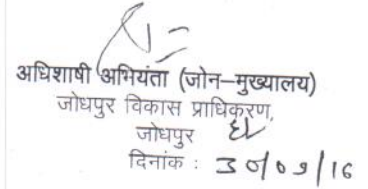 अधिशाषी अभियंता (जोन–मुख्यालय)
जोधपुर विकास प्राधिकरण,
जोधपुर
दिनांक : 30/09/16